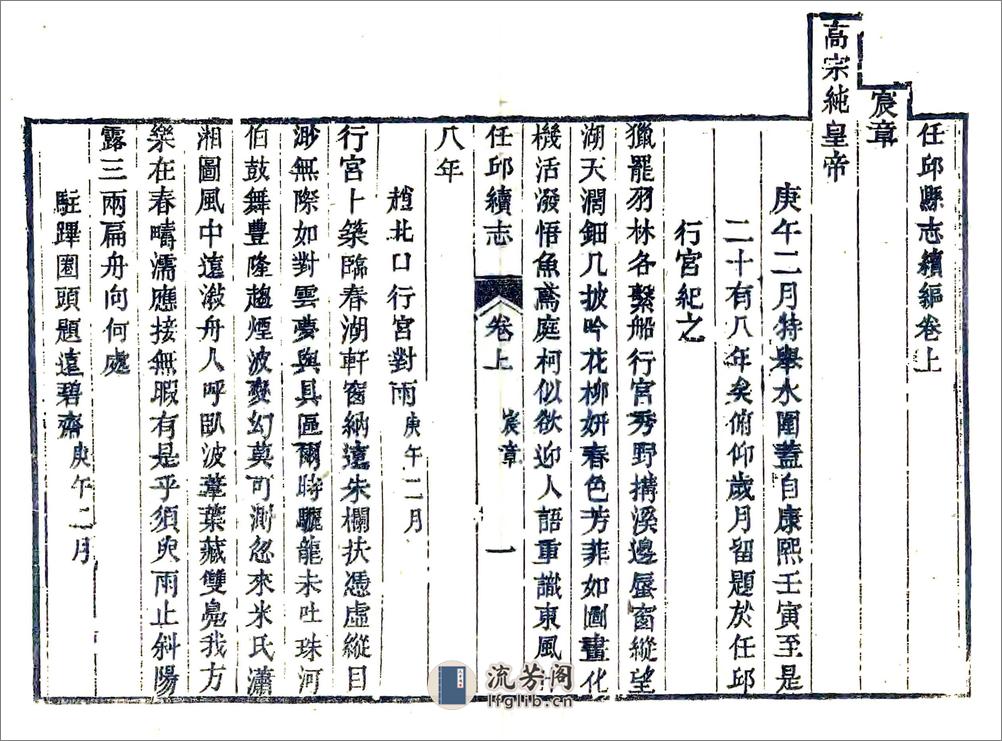 任邱縣志續編卷上
宸章
高宗純皇帝
庚午二月特舉水圍蓋自康熙壬寅至是
二十有八年矣俯仰歲月留題於任邱
行宮紀之
獵罷羽林各繫船行宮秀野搆溪邊蜃窗縱望
湖天濶鈿几披吟花柳妍春色芳菲如圖畫化
機活潑悟魚鳶庭柯似欲迎人語重識東風
任邱續志
卷上
宸章
一
八年
趙北口行宮對雨庚午二月
行宮卜築臨春湖軒窗納遠朱欄扶憑虛縱目
渺無際如對雲夢與具區爾時驪龍未吐珠河
伯鼓舞豐隆趨煙波變幻莫可測忽來米氏瀟
湘圖風中遠漵舟人呼臥波葦葉藏雙鳧我方
樂在春疇濡應接無暇有是乎須臾雨止斜陽
露三兩扁舟向何處
駐蹕圈頭題遠碧齋庚午二月
流芳阁
lfglib.cn